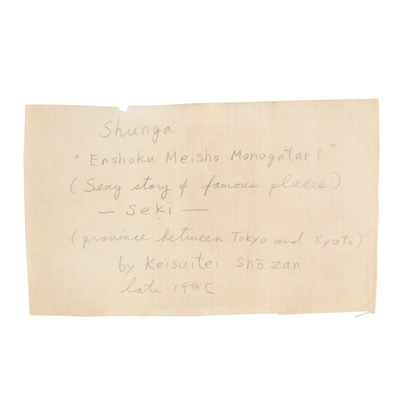 Shunga
"Enshoku Meisho Monogatari"
(Sexy story of famous places)
— Seki —
(province between Tokyo and Kyoto)
by Keisuitei Shōzan
late 19th C